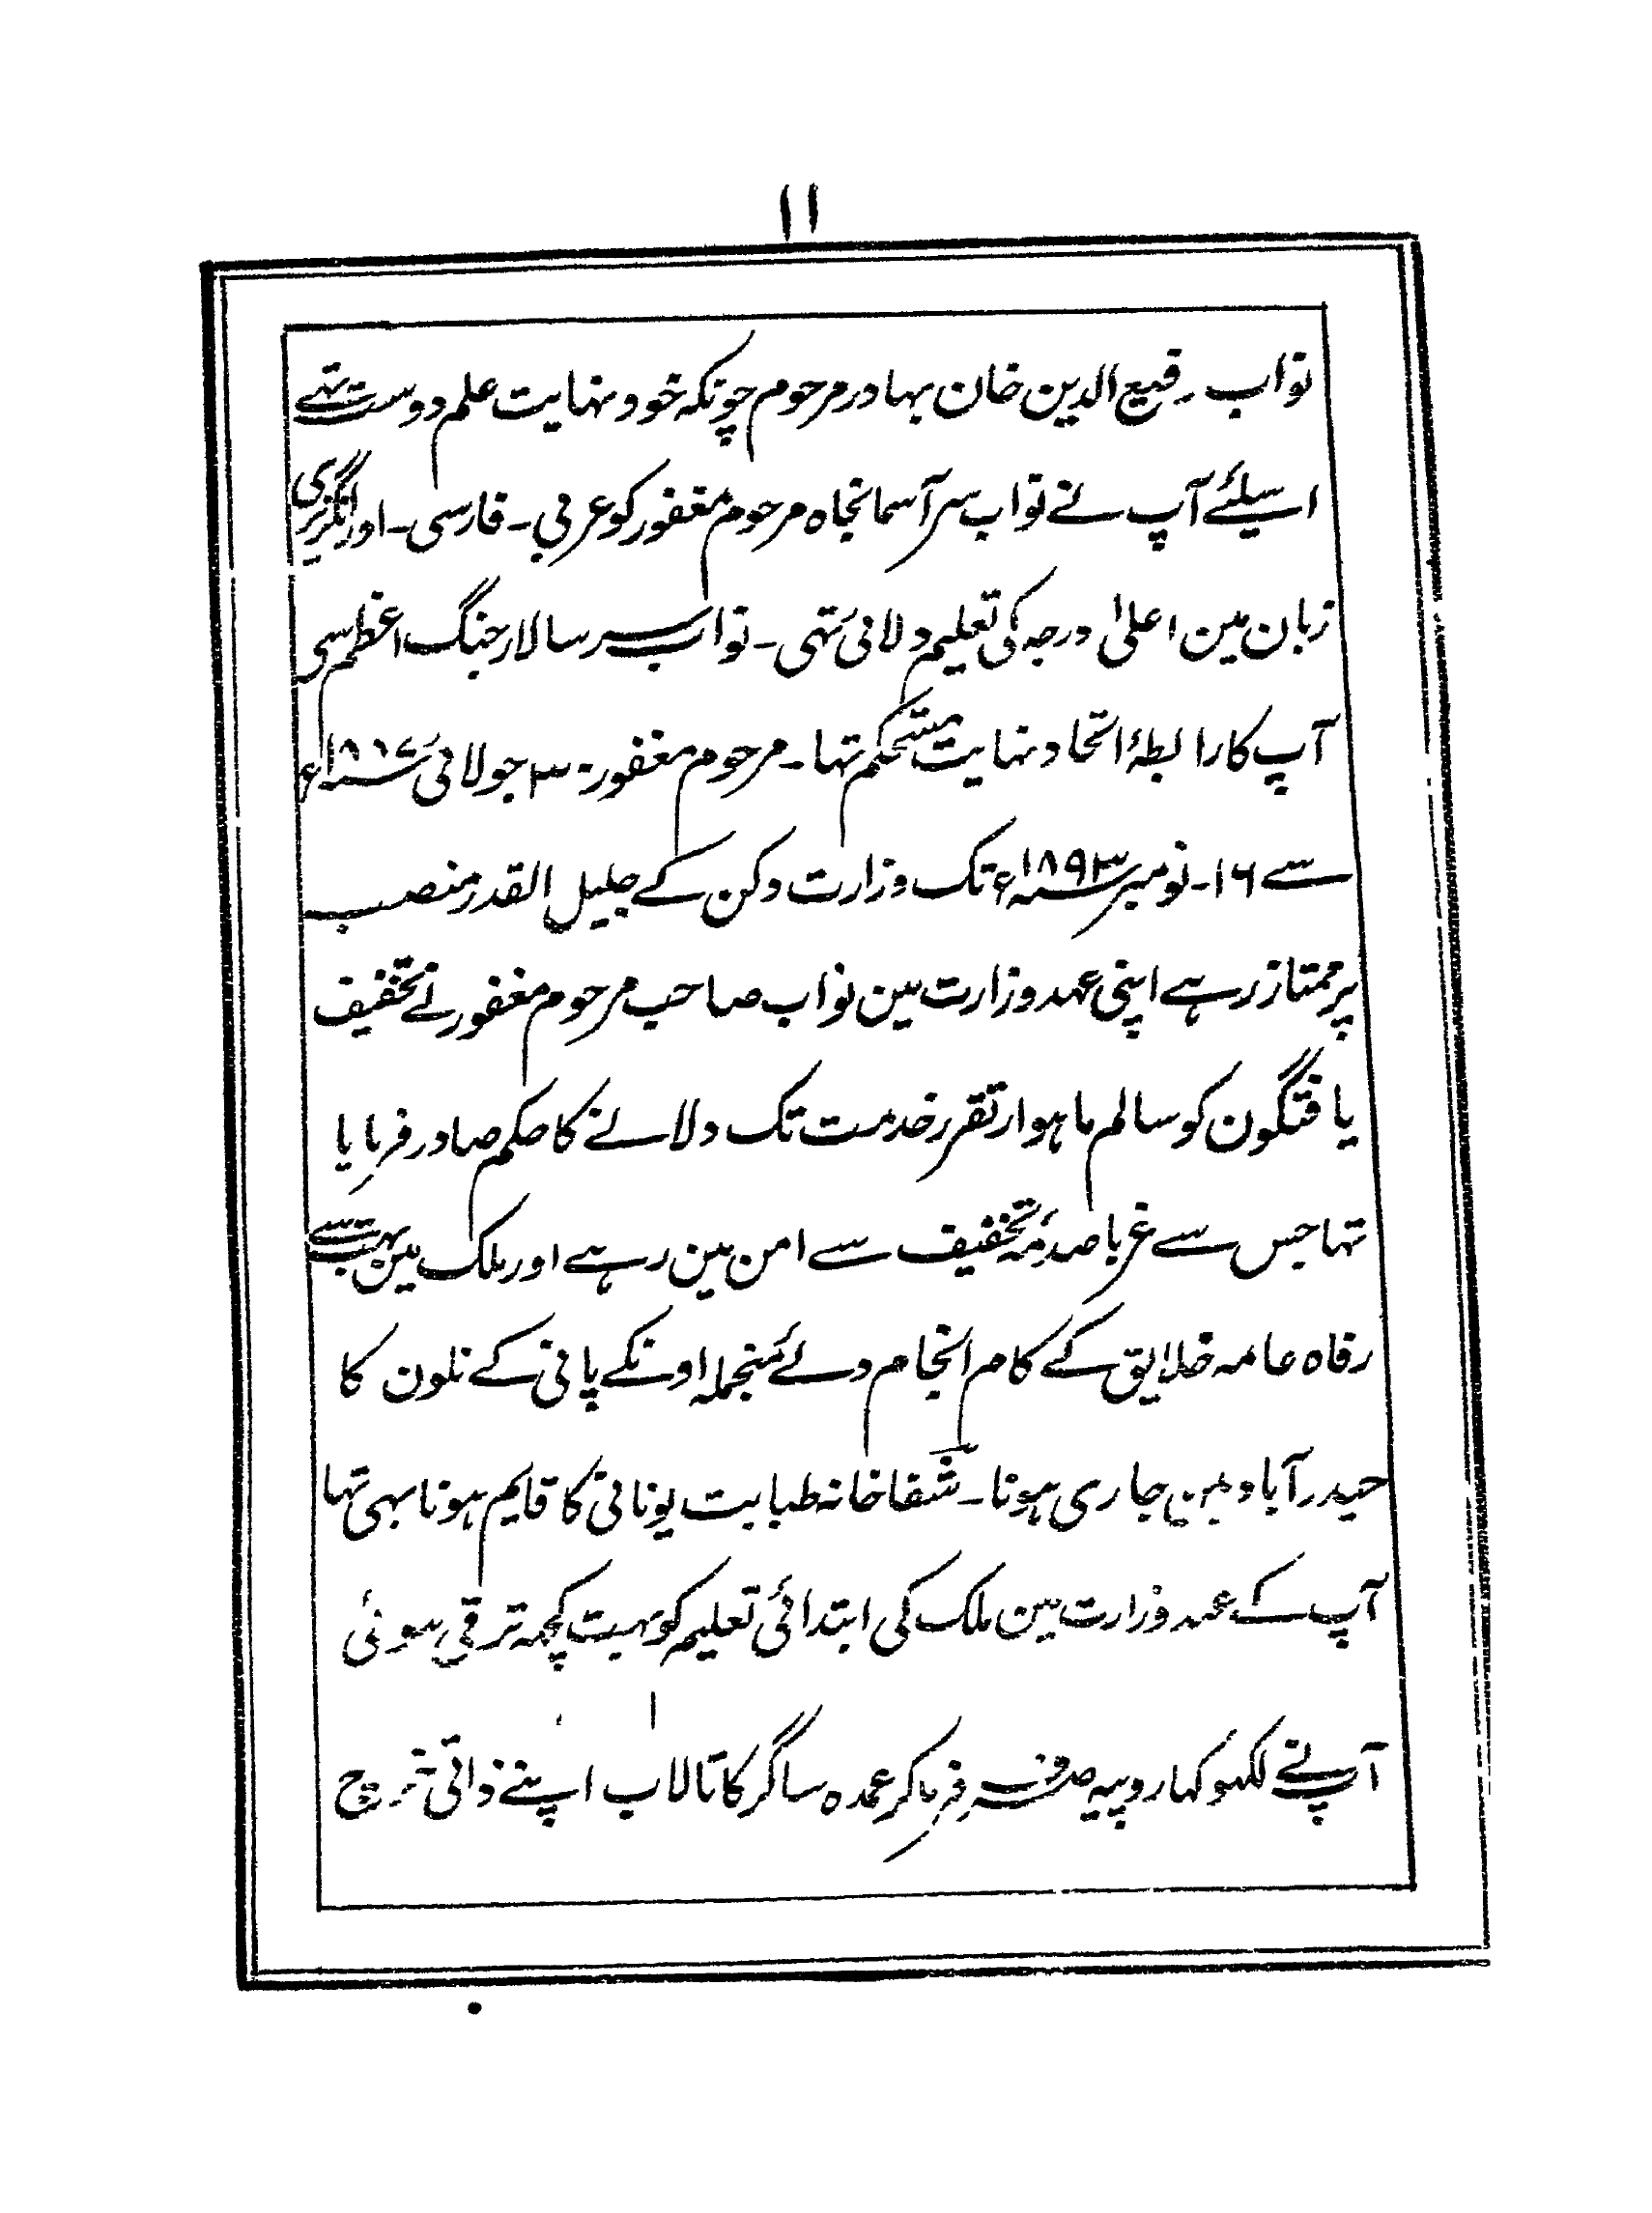 ۱۱
نواب رفیع الدین خان بہادر مرحوم چونکہ خود نہایت علم دوست تہے
اسیلئے آپ نے نواب سر آسمانجاہ مرحوم مغفور کو عربی ۔ فارسی ۔ اور انگریزی
زبان مین اعلیٰ درجہ کی تعلیم دلائی تہی ۔ نواب سر سالار جنگ اعظم سی
آپ کا رابطۂ اتحاد نہایت مستحکم تہا ۔ مرحوم مغفور ۳۰ جولائی
سے ۱۶ ۔ نومبر سنہ ۱۸۹۳ء تک وزارت دکن کے جلیل القدر منصب
پر ممتاز رہے اپنی عہد وزارت مین نواب صاحب مرحوم مغفور نے تخفیف
یافتگون کو سالم ماہوار تقرر خدمت تک دلانے کا حکم صادر فرمایا
تہا جس سے غربا صدمۂ تخفیف سے امن مین رہے اور ملک مین بہت سے
رفاہ عامہ خلایق کے کام انجام دئے منجملہ اونکے پانی کے نلون کا
حیدرآباد مین جاری ہونا ۔ شفاخانہ طبابت یونانی کا قایم ہونا بہی تہا
آپ کے عہد وزارت مین ملک کی ابتدائی تعلیم کو بہت کچہہ ترقی ہوئی
آپنے لکہوکہا روپیہ صرف فرما کر عمدہ ساگر کا تالاب اپنے ذاتی خرچ